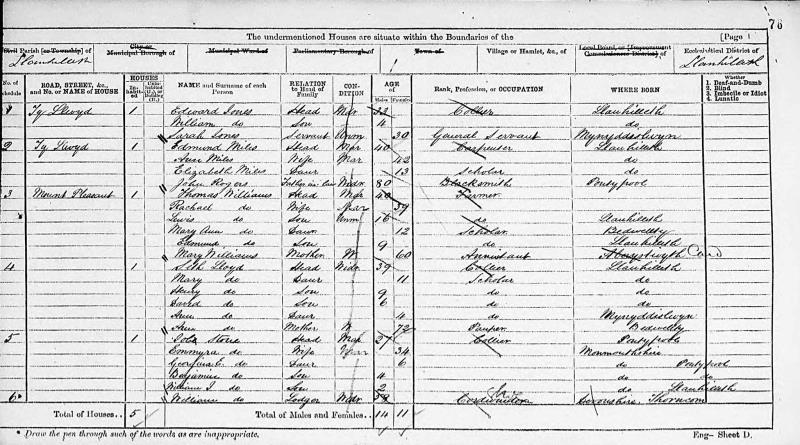 76
The undermentioned Houses are situate within the Boundaries of the
[Page 1
Civil Parish [or Township] of
City or Municipal Borough of
Municipal Ward of
Parliamentary Borough of
Town of
Village or Hamlet, &c., of
Local Board, or [Improvement Commissioners District] of
Ecclesiastical District of
Llanhilleth
Llanhilleth
No. of Schedule
ROAD, STREET, &c., and No. or NAME of HOUSE
HOUSES
Inhabited
Uninhabited (U.), or Building (B.)
NAME and Surname of each Person
RELATION to Head of Family
CONDITION
AGE of
Males
Females
Rank, Profession, or OCCUPATION
WHERE BORN
Whether
1. Deaf-and-Dumb
2. Blind
3. Imbecile or Idiot
4. Lunatic
1 Ty Llwyd 1 Edward Jones Head Widr 33 Collier Llanhilleth
William do Son 4 do
Sarah Jones Servant Unm 30 General Servant Mynyddislwyn
2 Ty Llwyd 1 Edmund Miles Head Mar 40 Carpenter Llanhilleth
Ann Miles Wife Mar 42 do
Elizabeth Miles Daur 13 Scholar do
John Rogers Father in law Widr 80 Blacksmith Pontypool
3 Mount Pleasant 1 Thomas Williams Head Mar 40 Farmer
Rachael do Wife Mar 39
Lewis do Son Unm 16 do Llanhilleth
Mary Ann do Daur 12 Scholar Bedwellty
Edmund do Son 9 do Llanhilleth
Mary Williams Mother W 60 Annuitant Aberystwyth Card
4 1 Seth Lloyd Head Widr 39 Collier Llanhilleth
Mary do Daur 11 Scholar do
Henry do Son 9 do do
David do Son 6 do do
Ann do Daur 4 Mynyddislwyn
Ann do Mother W 72 Pauper Bedwellty
5 1 Job Stone Head Mar 27 Collier Pontypool
Emmyra do Wife Mar 34 Monmouthshire
Georgina C. do Daur 6 do Pontypool
Benjamin do Son 4 do
William J. do Son 2 do Llanhilleth
6 William do Lodger Widr 58 Cordwainer Devonshire, Thorncom
Total of Houses.. 5
Total of Males and Females.. 14 11
* Draw the pen through such of the words as are inappropriate.
Eng- Sheet D.